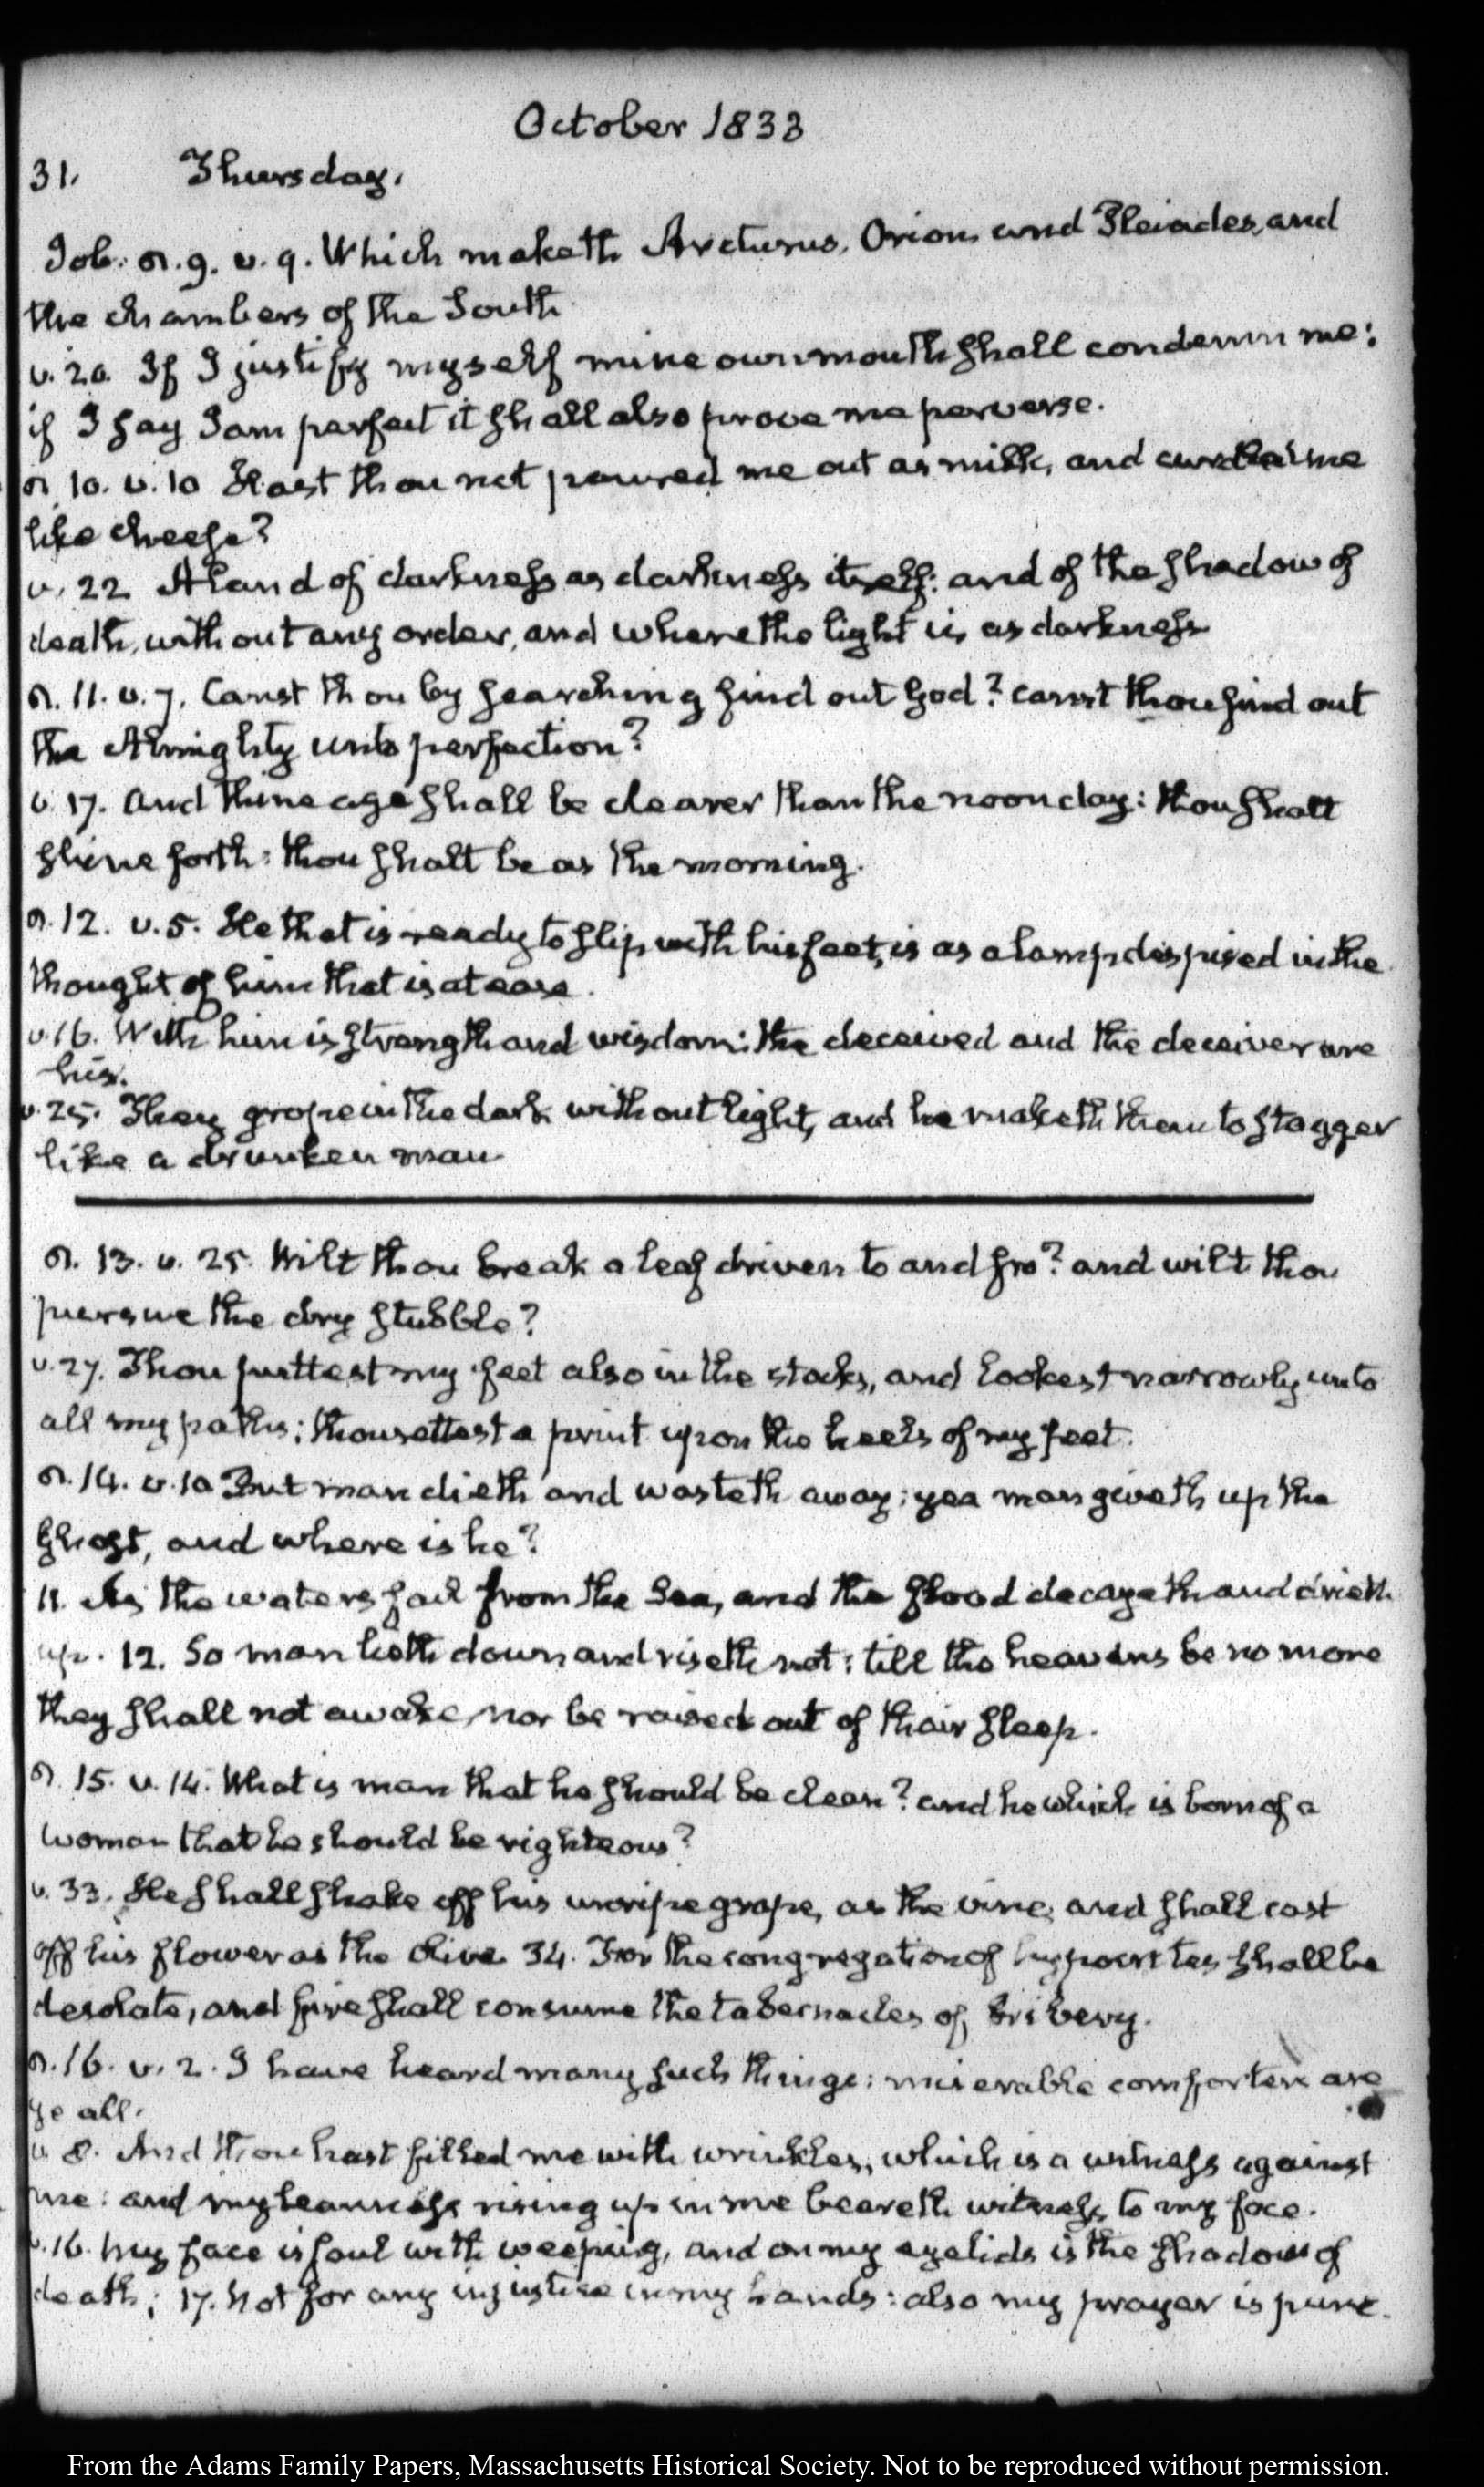 October 1833
31. Thursday.
Job. c. 9. v. 9. Which maketh Arcturus, Orion and Pleiades, and
the chambers of the South
v. 20. If I justify myself mine own mouth shall condemn me:
if I say I am perfect it shall also prove me perverse.
c. 10. v. 10 Hast thou not poured me out as milk, and curdled me
like cheese?
v. 22 A land of darkness as darkness itself: and of the shadow of
death, without any order, and where the light is as darkness
c. 11. v. 7. Canst thou by searching find out God? canst thou find out
the Almighty unto perfection?
v. 17. And thine age shall be clearer than the noonday: thou shalt
shine forth: thou shalt be as the morning.
c. 12. v. 5. He that is ready to slip with his feet, is as a lamp despised in the
thought of him that is at ease.
v. 16. With him is strength and wisdom: the deceived and the deceiver are
his.
v. 25. They grope in the dark without light, and he maketh them to stagger
like a drunken man
c. 13. v. 25. Wilt thou break a leaf driven to and fro? and wilt thou
pursue the dry stubble?
v. 27. Thou puttest my feet also in the stocks, and lookest narrowly unto
all my paths; thou settest a print upon the heels of my feet.
c. 14. v. 10 But man dieth and wasteth away: yea man giveth up the
ghost, and where is he?
11. As the waters fail from the Sea, and the flood decayeth and drieth
up. 12. So man lieth down and riseth not: till the heavens be no more
they shall not awake, nor be raised out of their sleep.
c. 15. v. 14. What is man that he should be clean? and he which is born of a
woman that he should be righteous?
v. 33. He shall shake off his unripe grape, as the vine, and shall cast
off his flower as the Olive. 34. For the congregation of hypocrites shall be
desolate, and fire shall consume the tabernacles of bribery.
c. 16. v. 2. I have heard many such things: miserable comforters are
ye all.
v. 8. And thou hast filled me with wrinkles, which is a witness against
me: and my leanness rising up in me beareth witness to my face.
v. 16. My face is foul with weeping, and on my eyelids is the shadow of
death; 17. Not for any injustice in my hands: also my prayer is pure.
From the Adams Family Papers, Massachusetts Historical Society. Not to be reproduced without permission.